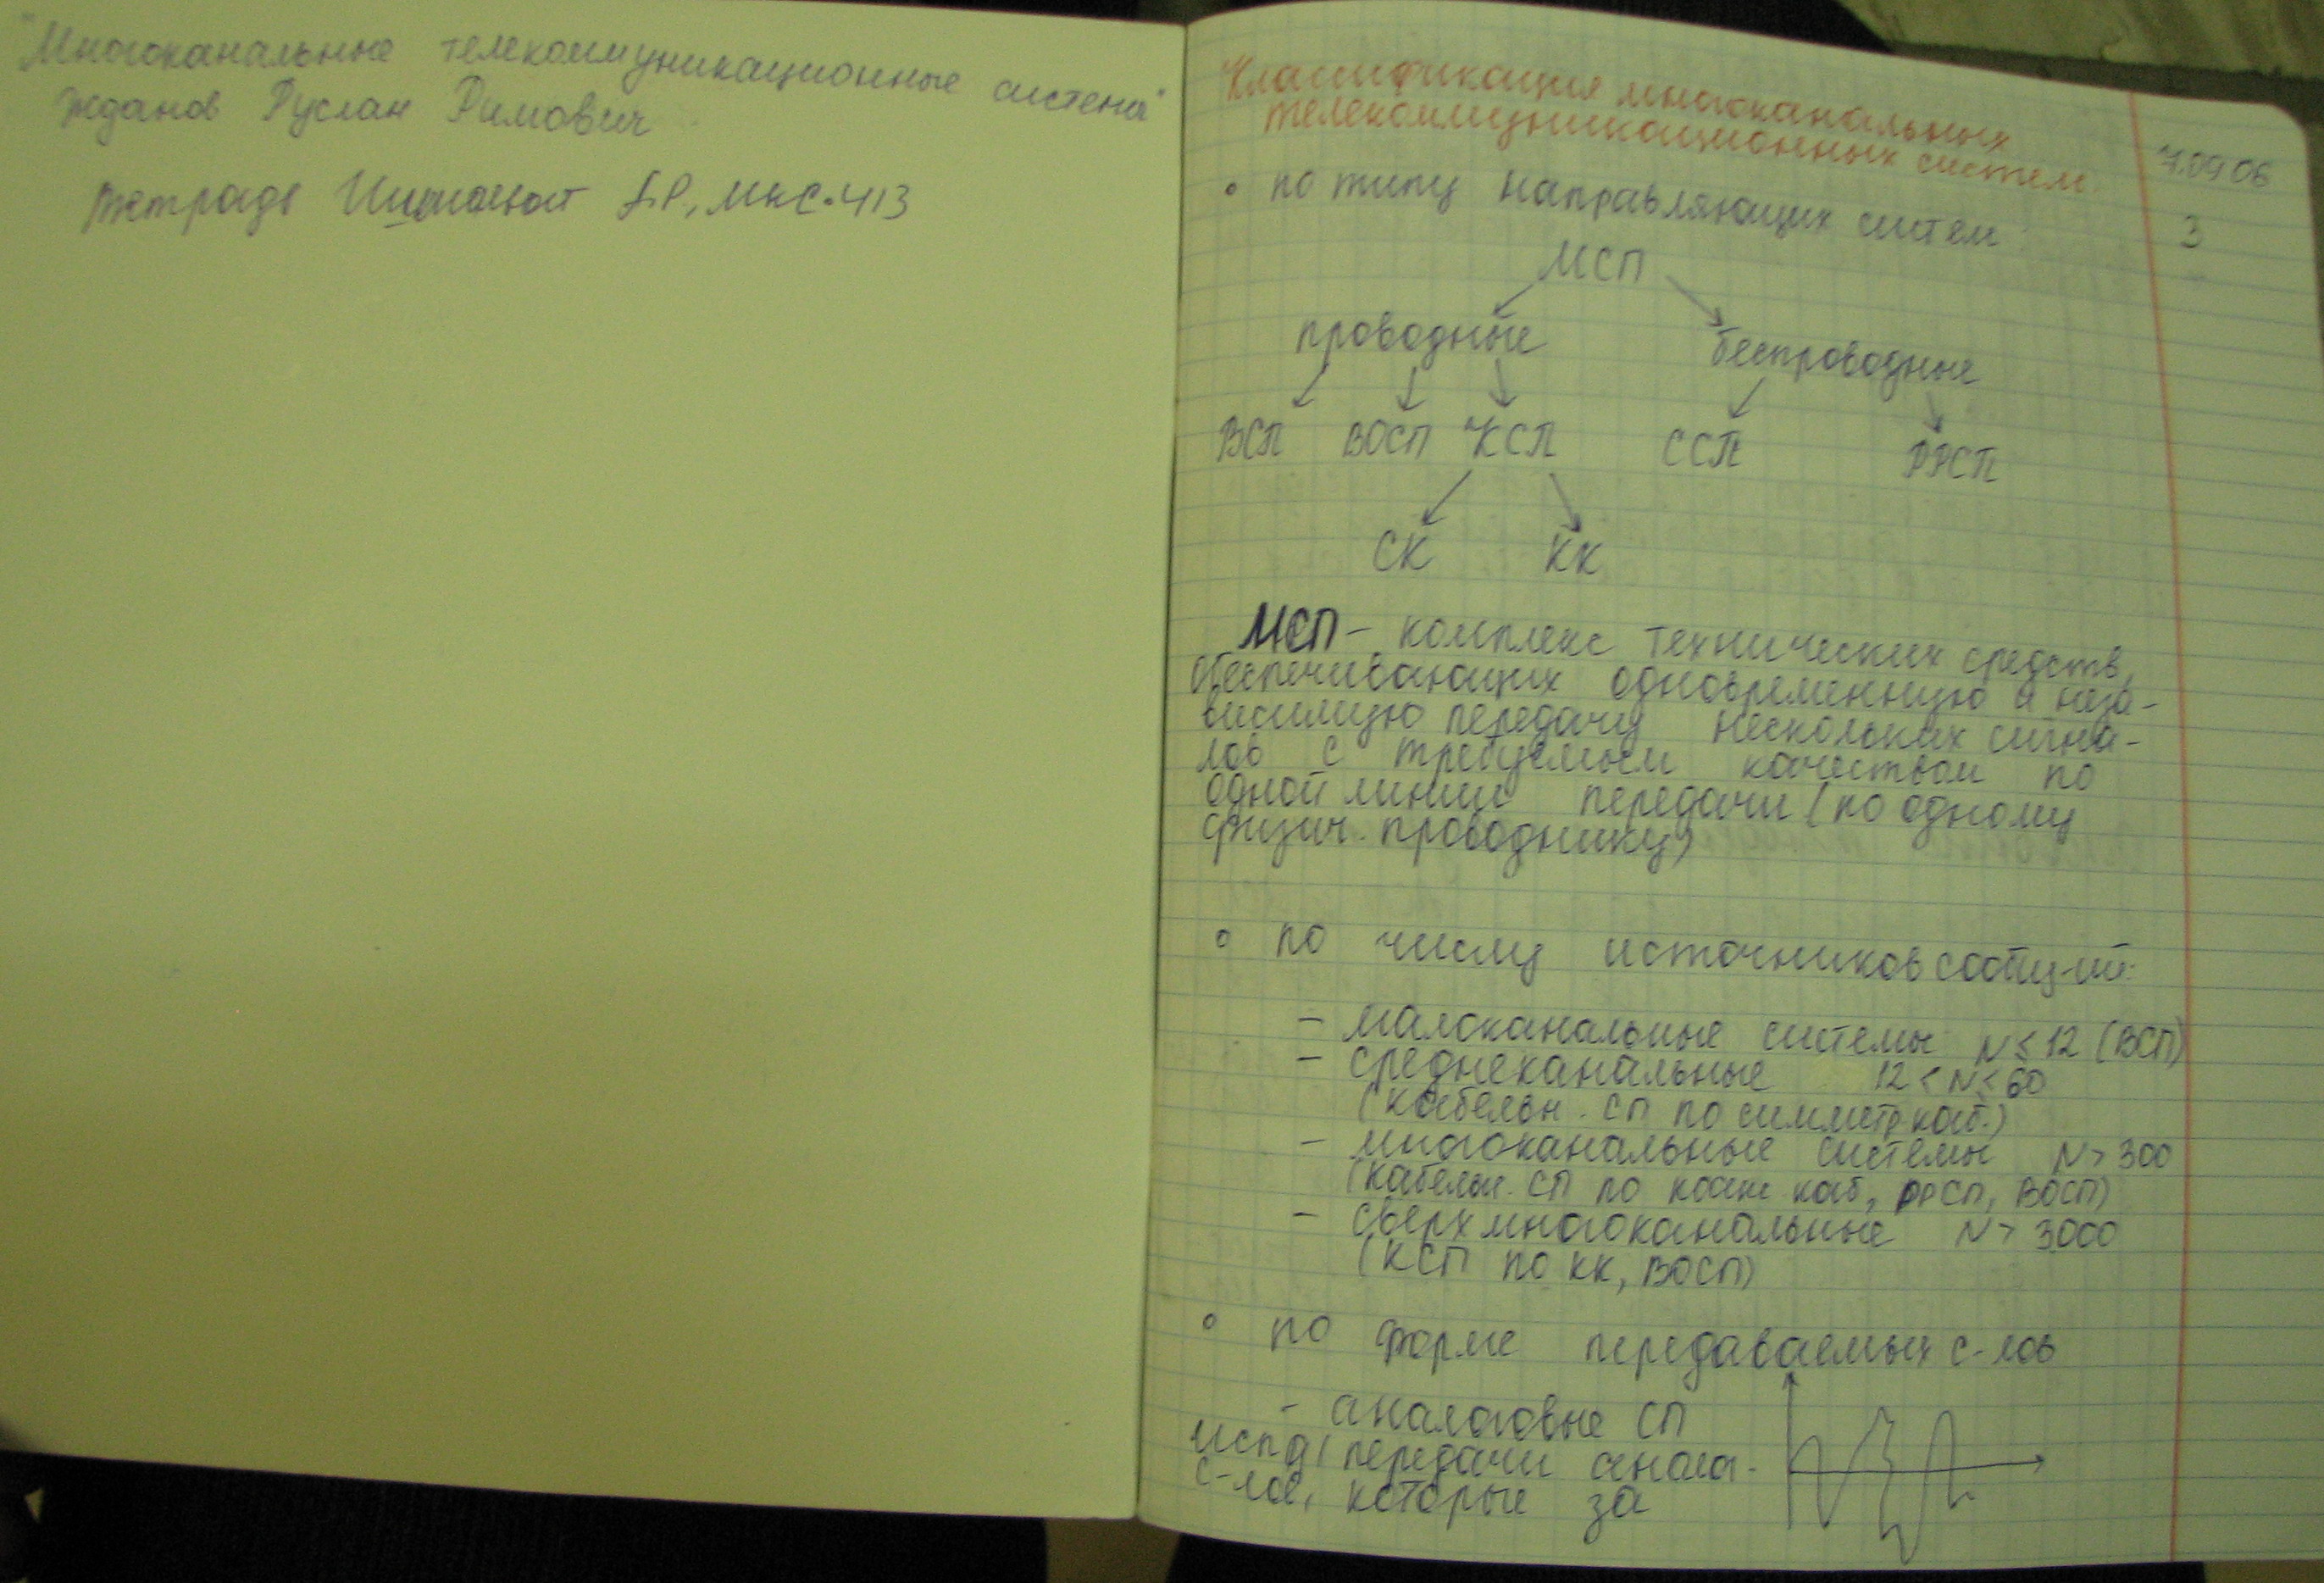 "Многоканальные телекоммуникационные система"
Жданов Руслан Римович
тетрадь МКС-413
Классификация многоканальных
телекоммуникационных систем.
7.09.06
• по типу направляющих систем:
3
МСП
проводные беспроводные
ВСП ВОСП КСП ССП РРСП
СК КК
МСП – комплекс технических средств,
обеспечивающих одновременную и неза-
висимую передачу нескольких сигна-
лов с требуемым качеством по
одной линии передачи (по одному
физич. проводнику)
• по числу источников сообщ-ий:
– малоканальные системы N ≤ 12 (ВСП)
– среднеканальные 12 < N ≤ 60
(кабельн. СП по симметр каб.)
– многоканальные системы N > 300
(кабельн. СП по коакс каб, РРСП, ВОСП)
– сверхмногоканальные N > 3000
(КСП по КК, ВОСП)
• по форме передаваемых с-лов
– аналоговые СП
исп д/ передачи аналог.
с-лов, которые за